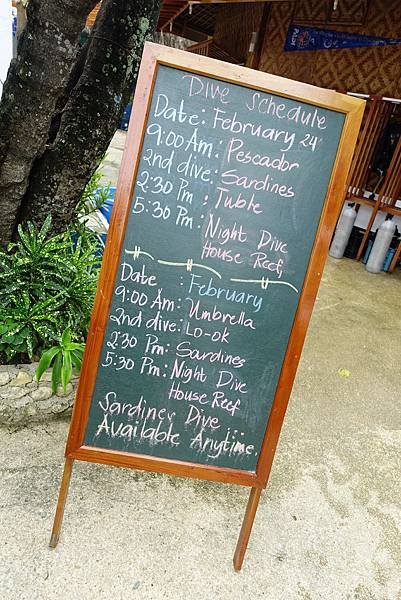 Dive Schedule
Date: February 24
9:00 Am: Pescador
2nd dive: Sardines
2:30 Pm: Tuble
5:30 Pm: Night Dive
House Reef
Date: February
9:00 Am: Umbrella
2nd dive: Lo-ok
2:30 Pm: Sardines
5:30 Pm: Night Dive
House Reef
Sardines Dive ...
Available Anytime.